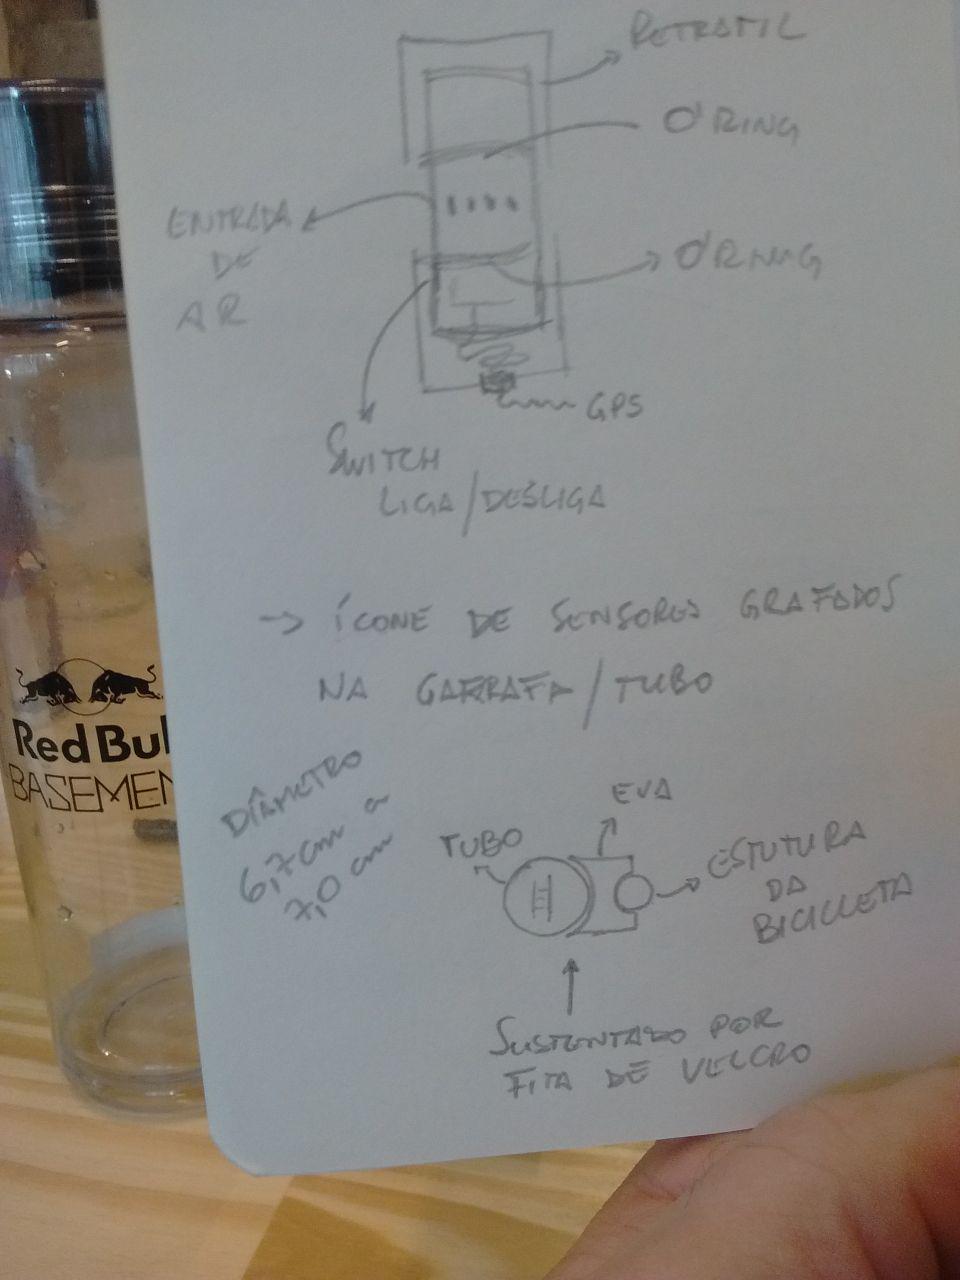 RETRATIL
O'RING
ENTRADA
DE
AR
O'RING
GPS
SWITCH
LIGA/DESLIGA
→ ÍCONE DE SENSORES GRAFADOS
NA GARRAFA/TUBO
Red Bul
BASEMEN
DIÂMETRO
6,7cm a
7,0 cm
EVA
TUBO
ESTUTURA
DA
BICICLETA
SUSTENTADO POR
FITA DE VELCRO